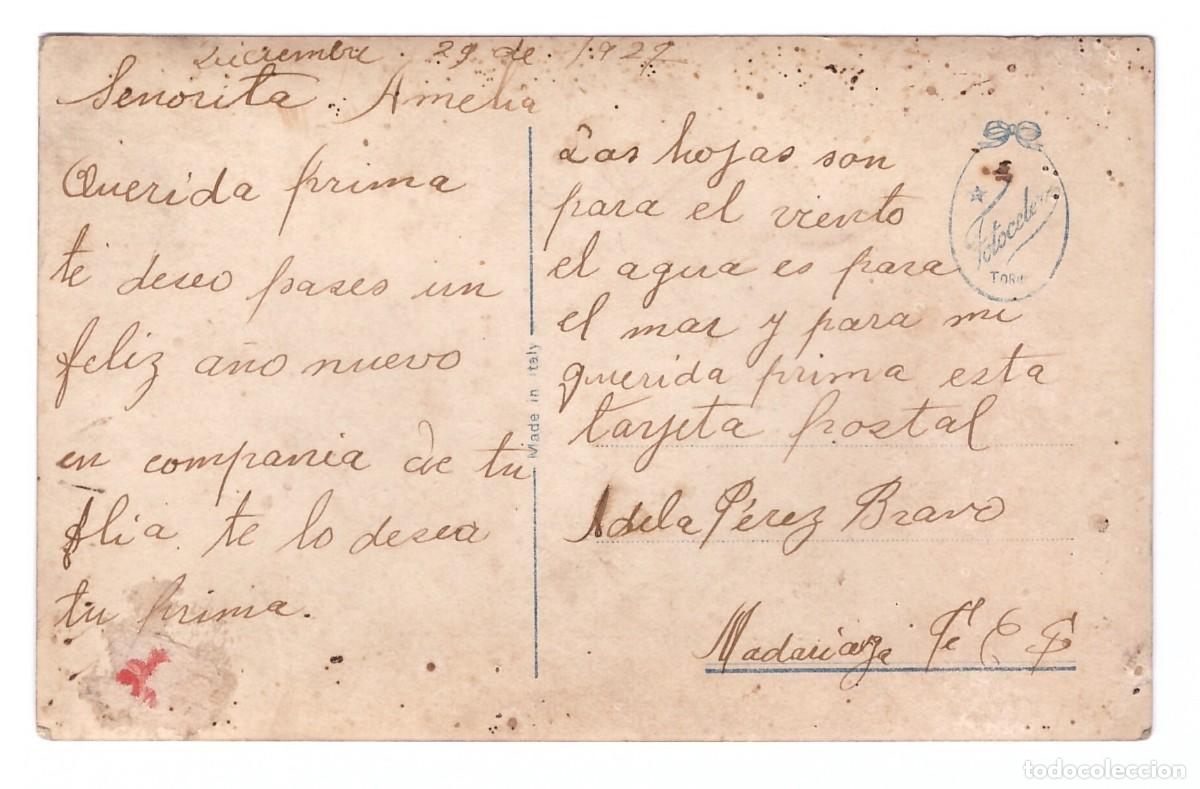 Diciembre 29 de 1929
Señorita Amelia
Querida prima
te deseo pases un
feliz año nuevo
en compania de tu
flia te lo desea
tu prima.
Made in Italy
Las hojas son
para el viento
el agua es para
el mar y para mi
querida prima esta
tarjeta postal
Adela Pérez Bravo
Madariaga
Fotocelere
TORINO
todocoleccion